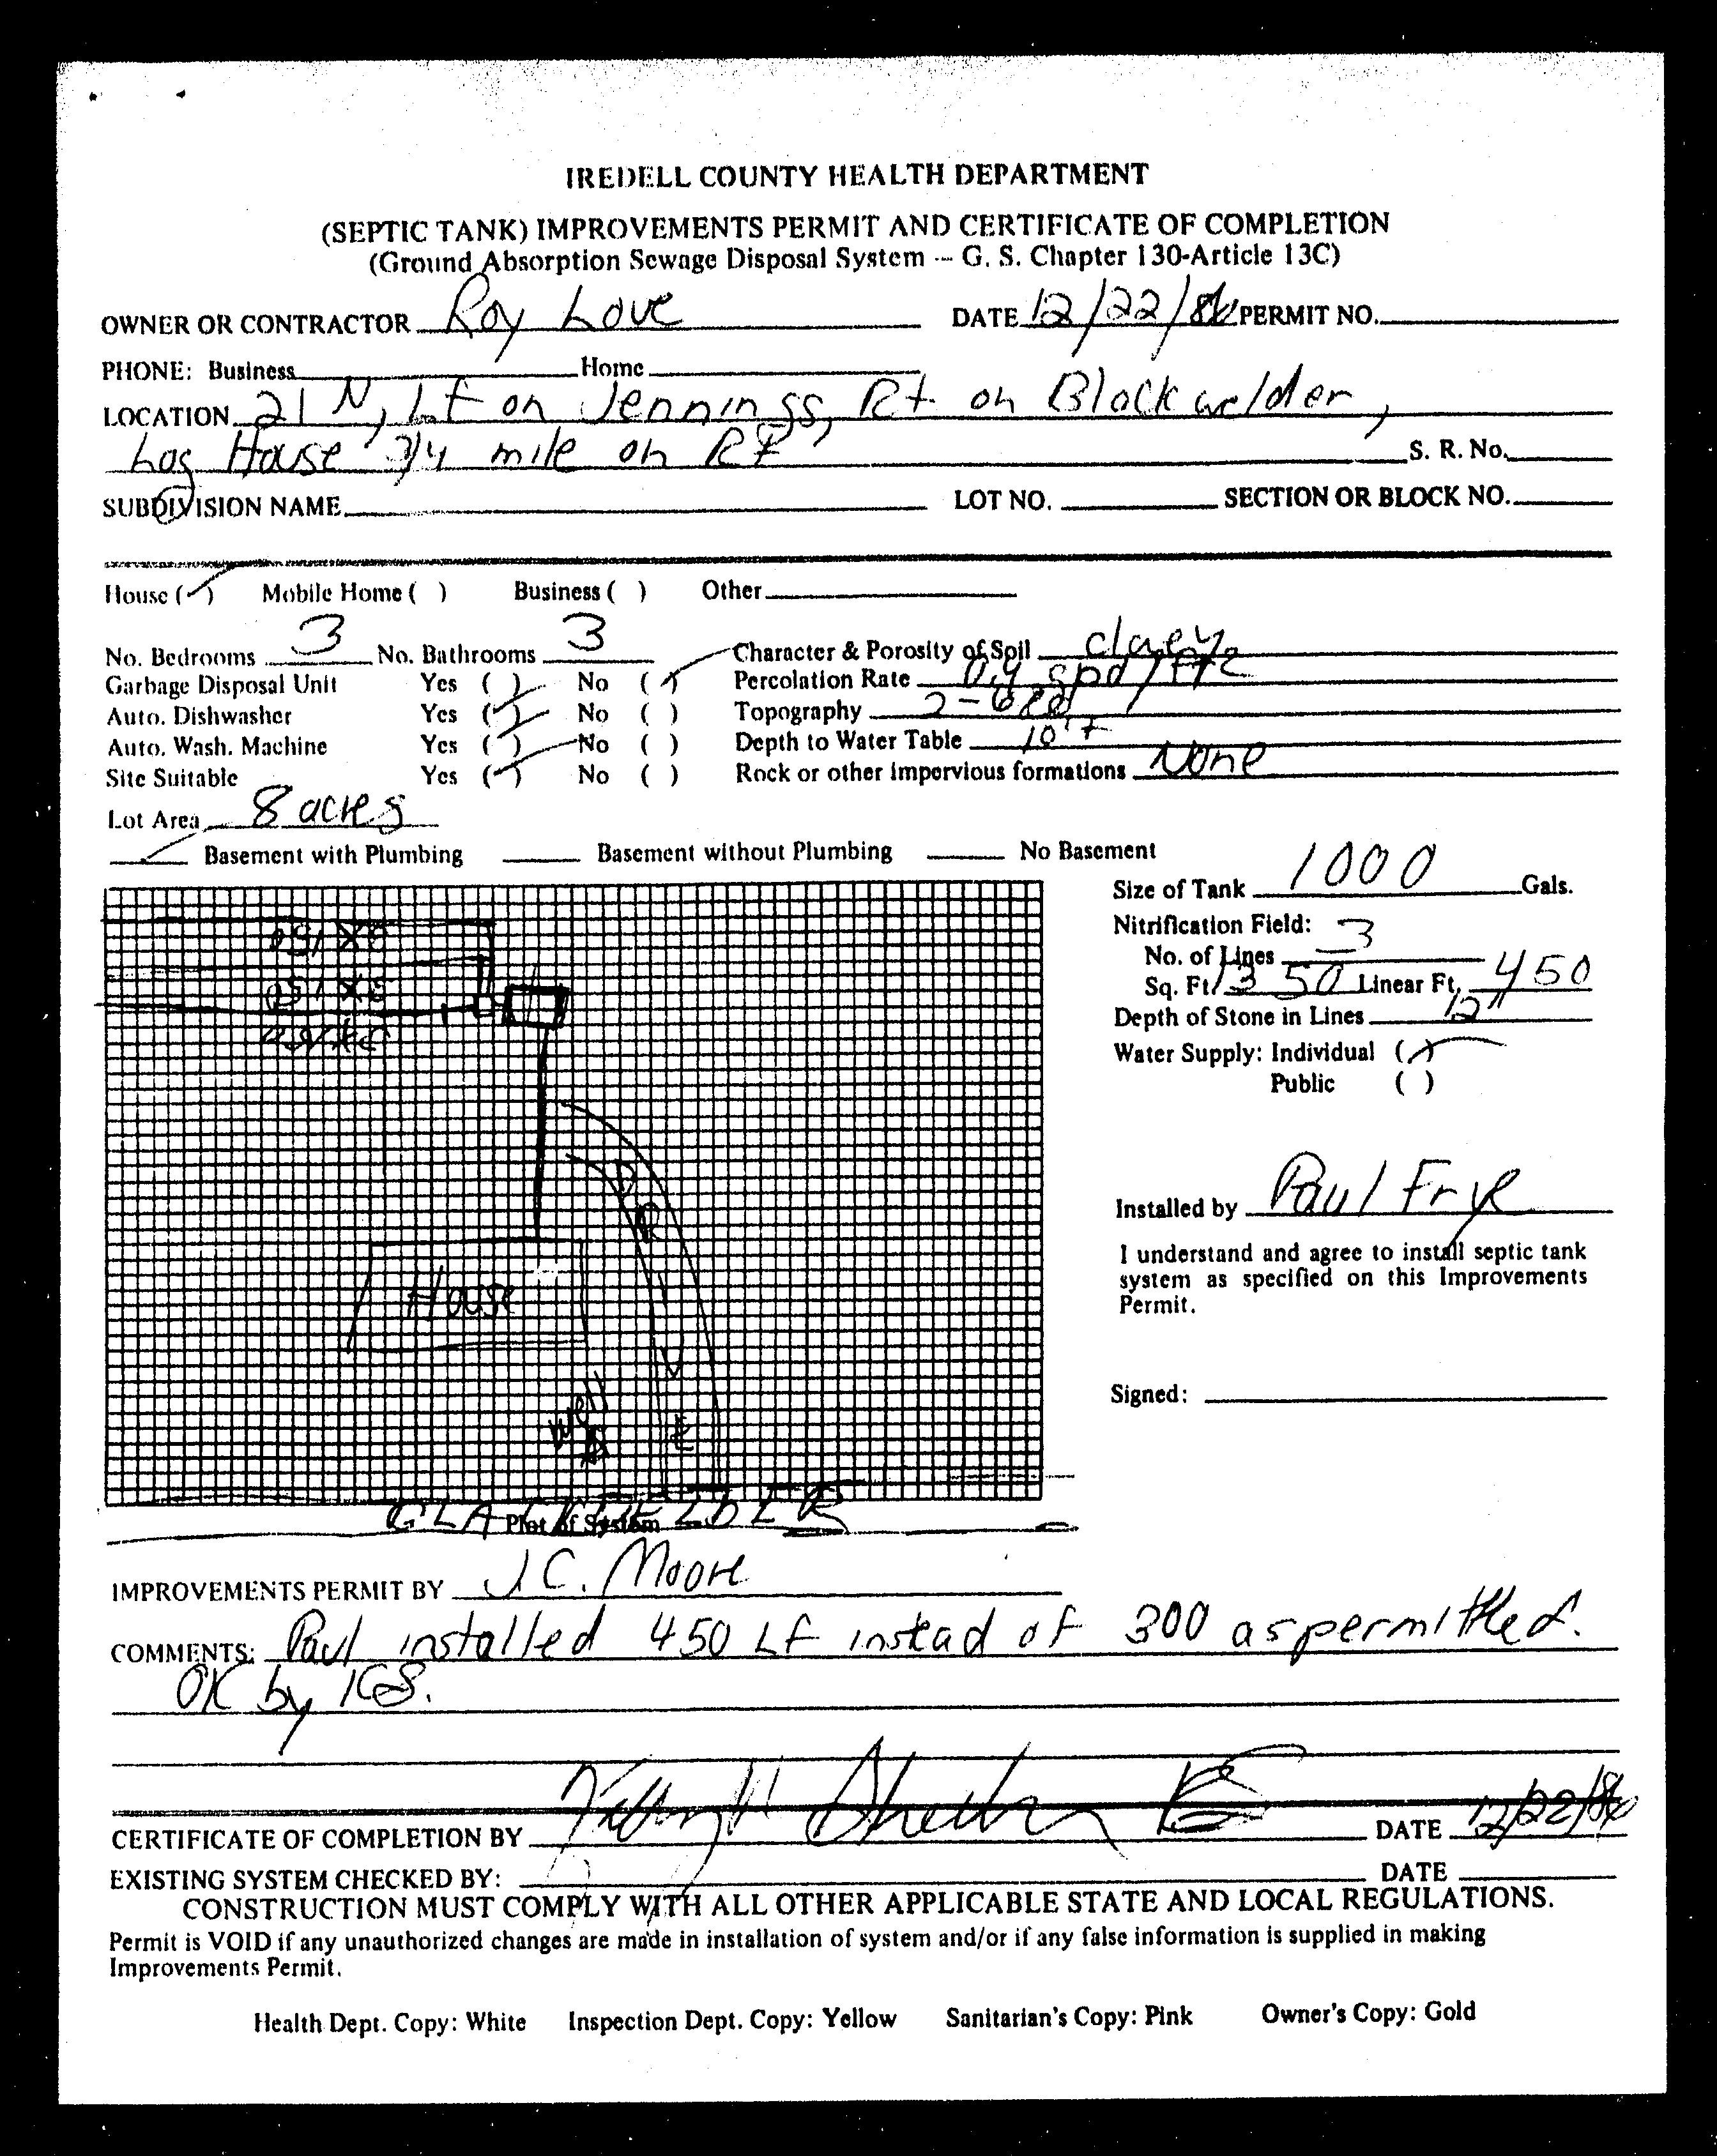 IREDELL COUNTY HEALTH DEPARTMENT
(SEPTIC TANK) IMPROVEMENTS PERMIT AND CERTIFICATE OF COMPLETION
(Ground Absorption Sewage Disposal System -- G. S. Chapter 130-Article 13C)
OWNER OR CONTRACTOR Roy Love DATE 12/22/86 PERMIT NO.
PHONE: Business Home
LOCATION 21 N, Lf on Jennings, Rt on Blackwelder,
Log House 3/4 mile on Rt S. R. No.
SUBDIVISION NAME LOT NO. SECTION OR BLOCK NO.
House (✓) Mobile Home ( ) Business ( ) Other
No. Bedrooms 3 No. Bathrooms 3 Character & Porosity of Soil clayey
Garbage Disposal Unit Yes ( ) No (✓) Percolation Rate 0.4 gpd/ft2
Auto. Dishwasher Yes (✓) No ( ) Topography 2-6
Auto. Wash. Machine Yes (✓) No ( ) Depth to Water Table 10'+
Site Suitable Yes (✓) No ( ) Rock or other impervious formations None
Lot Area 8 acres
✓ Basement with Plumbing Basement without Plumbing No Basement
Size of Tank 1000 Gals.
Nitrification Field:
No. of Lines 3
Sq. Ft. 1350 Linear Ft. 450
Depth of Stone in Lines 12"
Water Supply: Individual (✓)
Public ( )
3 X 150
3 X 150
3 X 150
DR
House
Well
Installed by Paul Frye
I understand and agree to install septic tank
system as specified on this Improvements
Permit.
Signed:
Plot of System
IMPROVEMENTS PERMIT BY J.C. Moore
COMMENTS: Paul installed 450 LF instead of 300 as permitted.
OK by KS.
CERTIFICATE OF COMPLETION BY DATE 12/22/86
EXISTING SYSTEM CHECKED BY: DATE
CONSTRUCTION MUST COMPLY WITH ALL OTHER APPLICABLE STATE AND LOCAL REGULATIONS.
Permit is VOID if any unauthorized changes are made in installation of system and/or if any false information is supplied in making
Improvements Permit.
Health Dept. Copy: White Inspection Dept. Copy: Yellow Sanitarian's Copy: Pink Owner's Copy: Gold